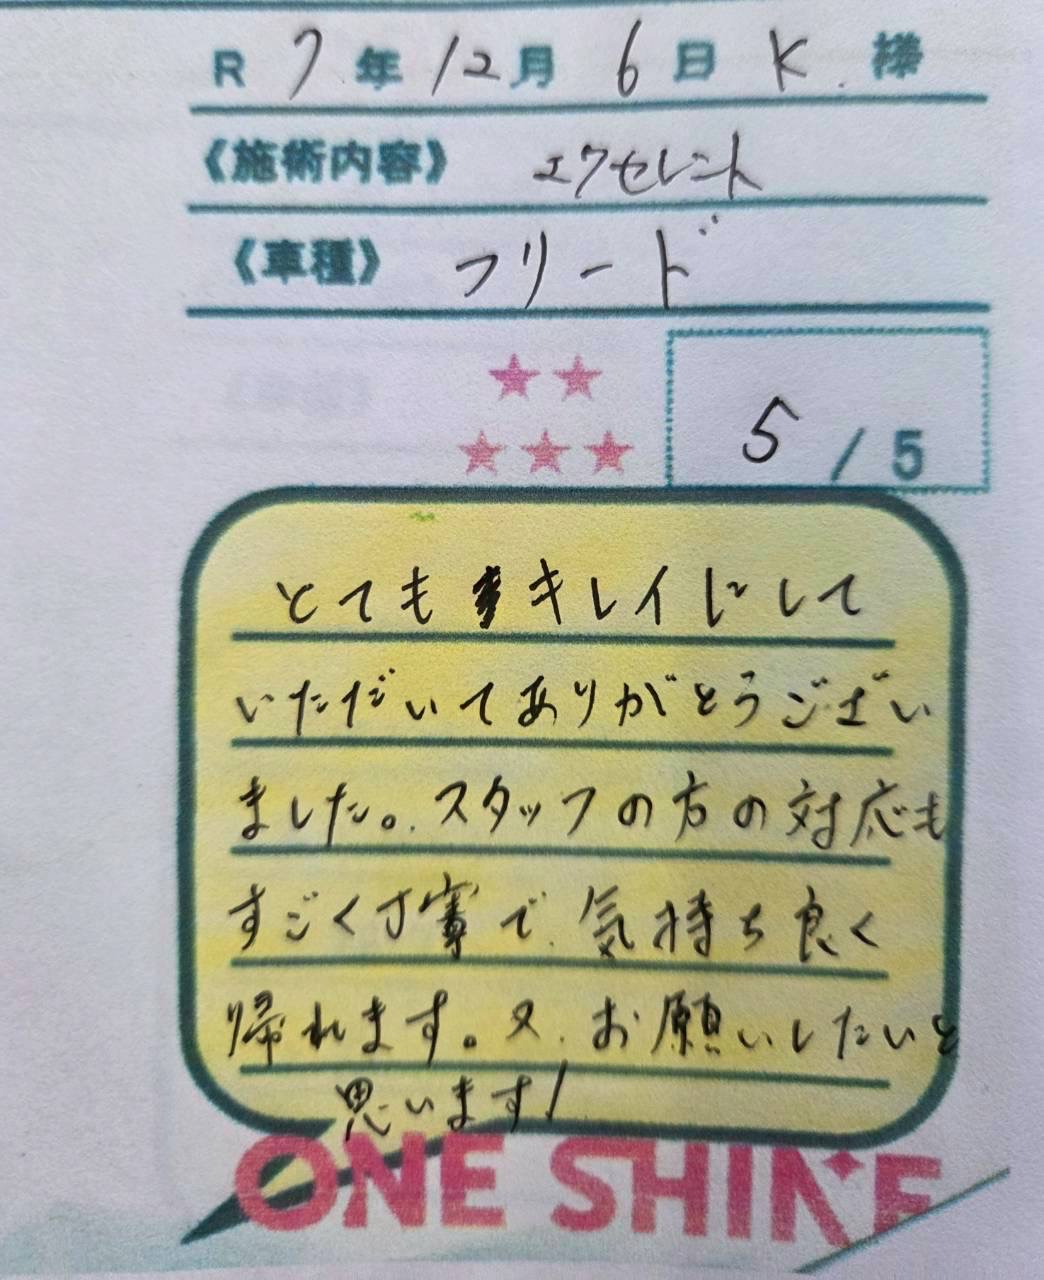 R 7年 12月 6日 K. 様
《施術内容》 エクセレント
《車種》 フリード
5 / 5
とても キレイにして
いただいてありがとうござい
ました。スタッフの方の対応も
すごく寧で、気持ち良く
帰れます。又、お願いしたいと
思います!
ONE SHINE